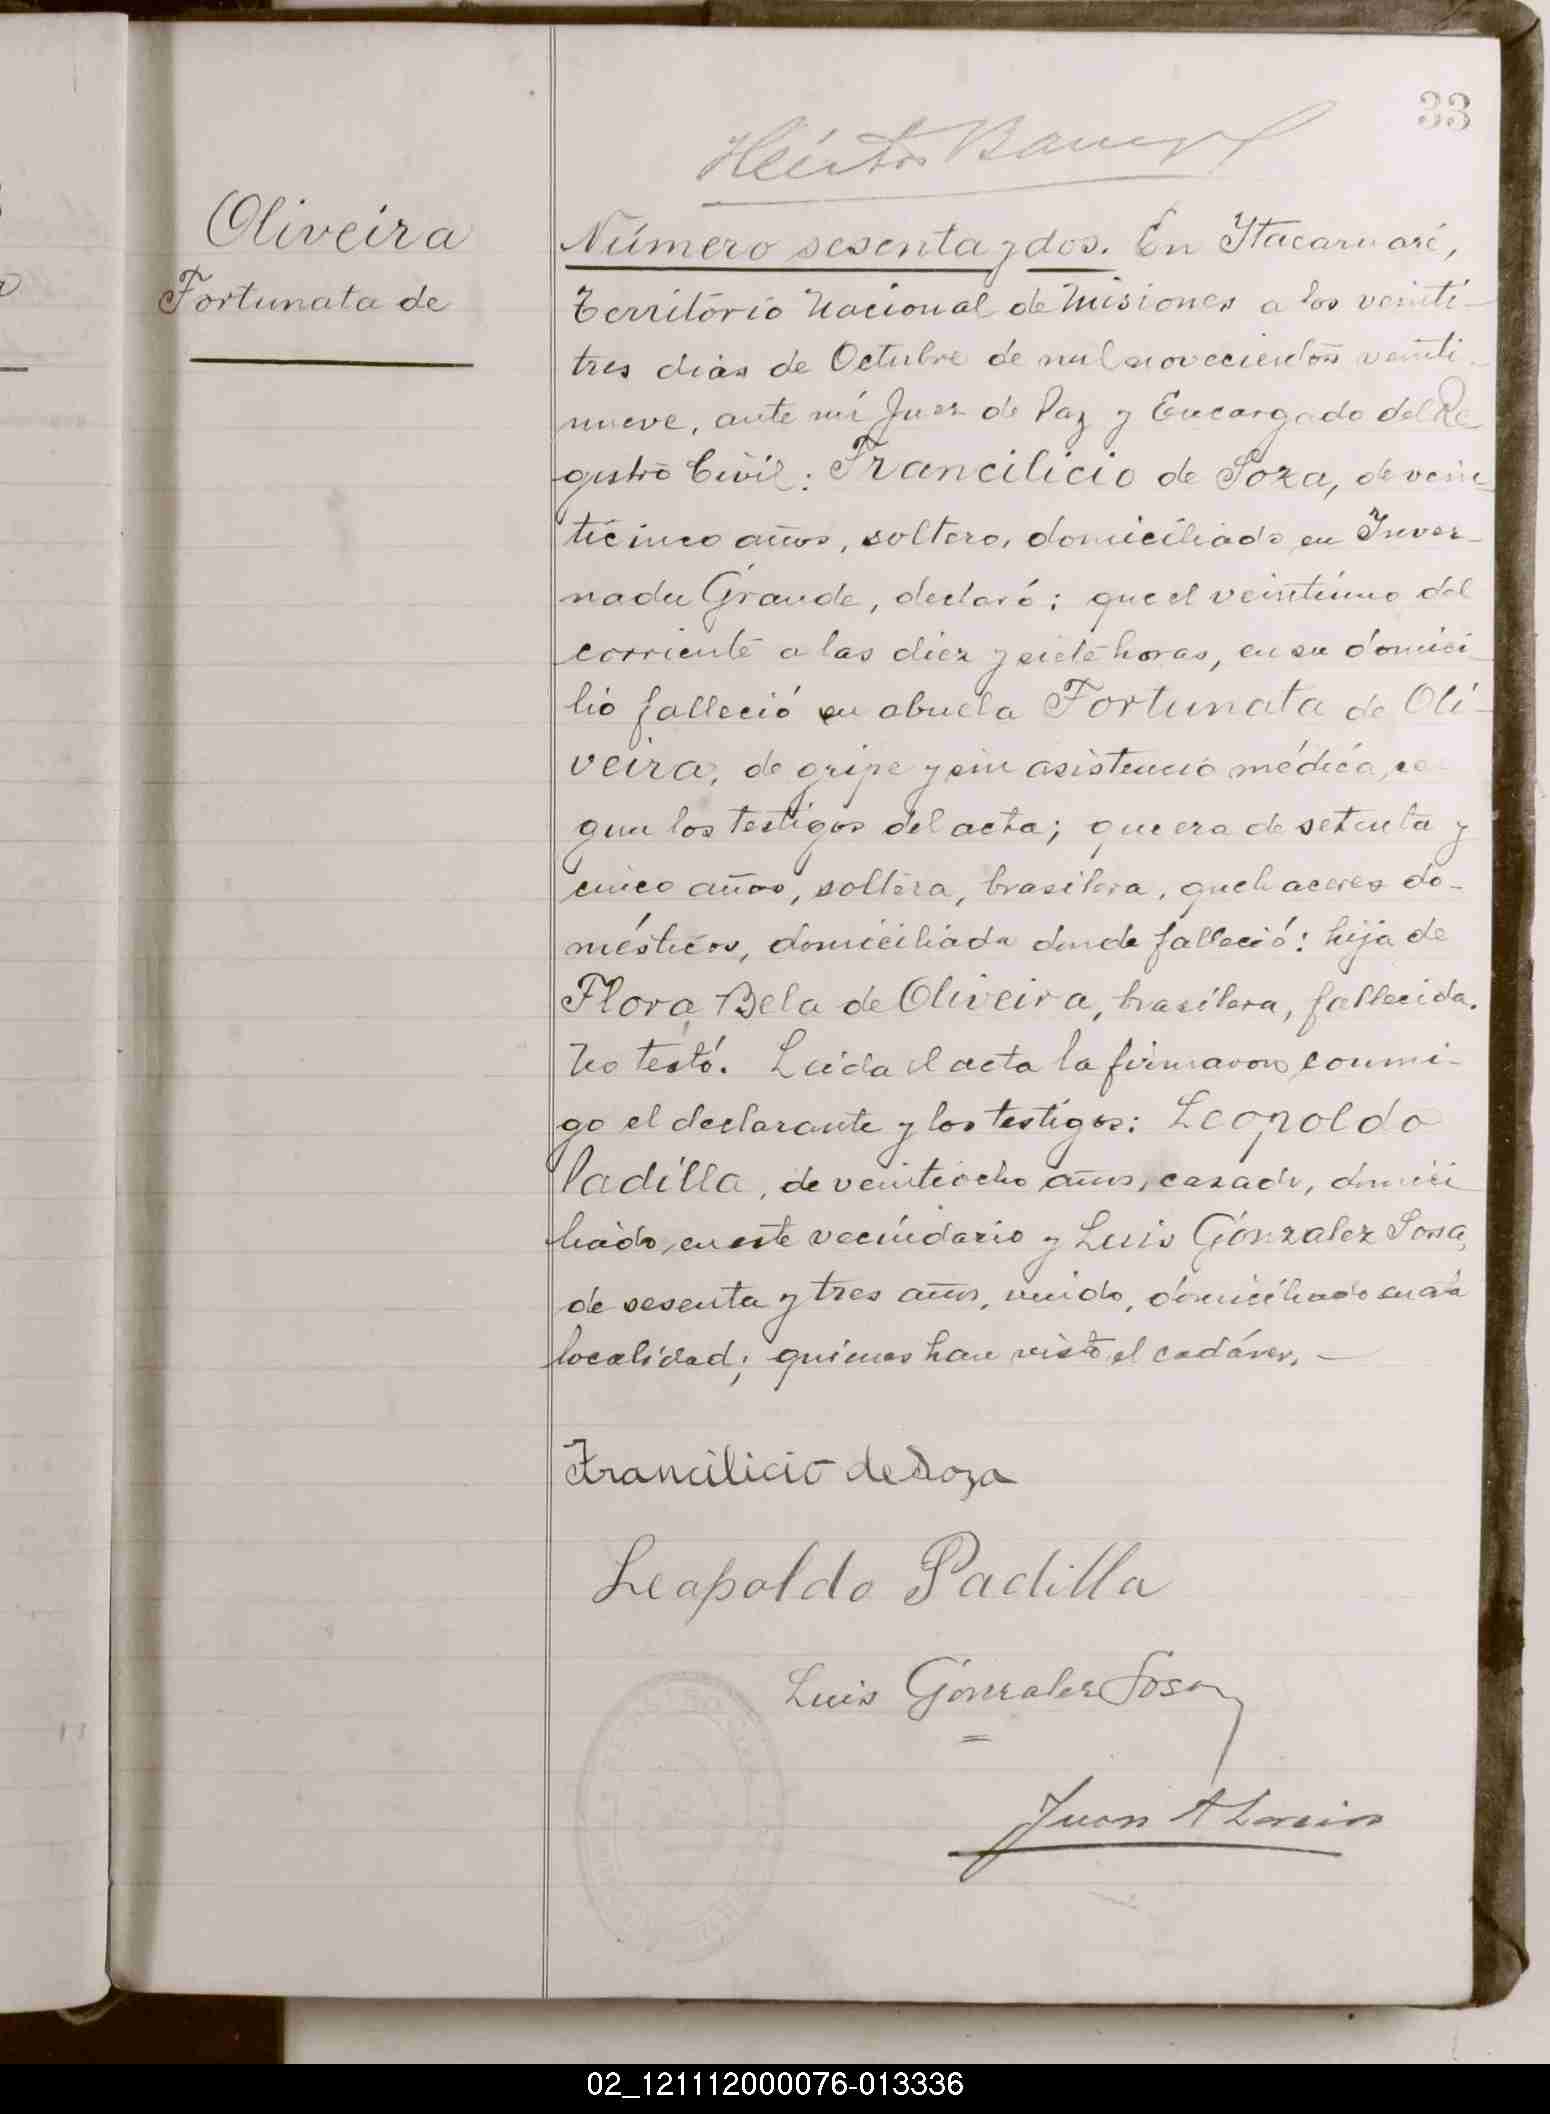 33
Oliveira
Fortunata de
Número sesenta y dos. En Ytacaruaré,
Território Nacional de Misiones a los veinti-
tres dias de Octubre de mil novecientos veinti-
nueve, ante mí Juez de Paz y Encargado del Re
gistro Civil: Francilicio de Soza, de vein-
ticinco años, soltero, domiciliado en Inver-
nada Grande, declaró: que el veintiuno del
corriente a las diez y siete horas, en su domici-
lio falleció su abuela Fortunata de Oli-
veira, de gripe y sin asistencia médica, se-
gun los testigos del acta; que era de setenta y
cinco años, soltera, brasilera, quehaceres do-
mésticos, domiciliada donde falleció: hija de
Flora Bela de Oliveira, brasilera, fallecida.
No testó. Leida el acta la firmaron conmi-
go el declarante y los testigos: Leopoldo
Padilla, de veintiocho años, casado, domici
liado, en este vecindario y Luis Gónzalez Sosa,
de sesenta y tres años, viudo, domiciliado en esta
localidad; quienes han visto el cadáver. —
Francilicio de Soza
Leopoldo Padilla
Luis Gónzalez Sosa
Juan A
02_121112000076-013336